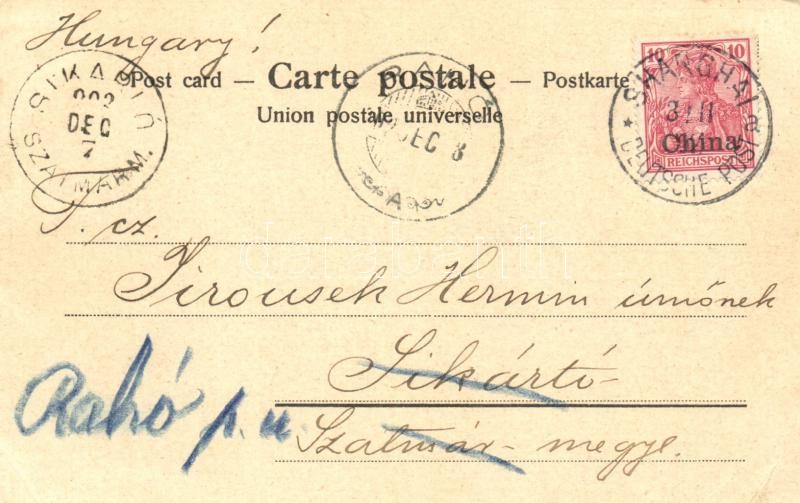 Hungary!
SIKARLÓ
902
DEC
7
SZATMÁR M.
DEC 8
Post card — Carte postale — Postkarte
Union postale universelle
10 10
China
REICHSPOST
SHANGHAI
3/11
DEUTSCHE POST
T. cz.
Jirousek Hermin úrnőnek
Sikárló
Szatmár-megye.
Rahó p. u.
darabanth